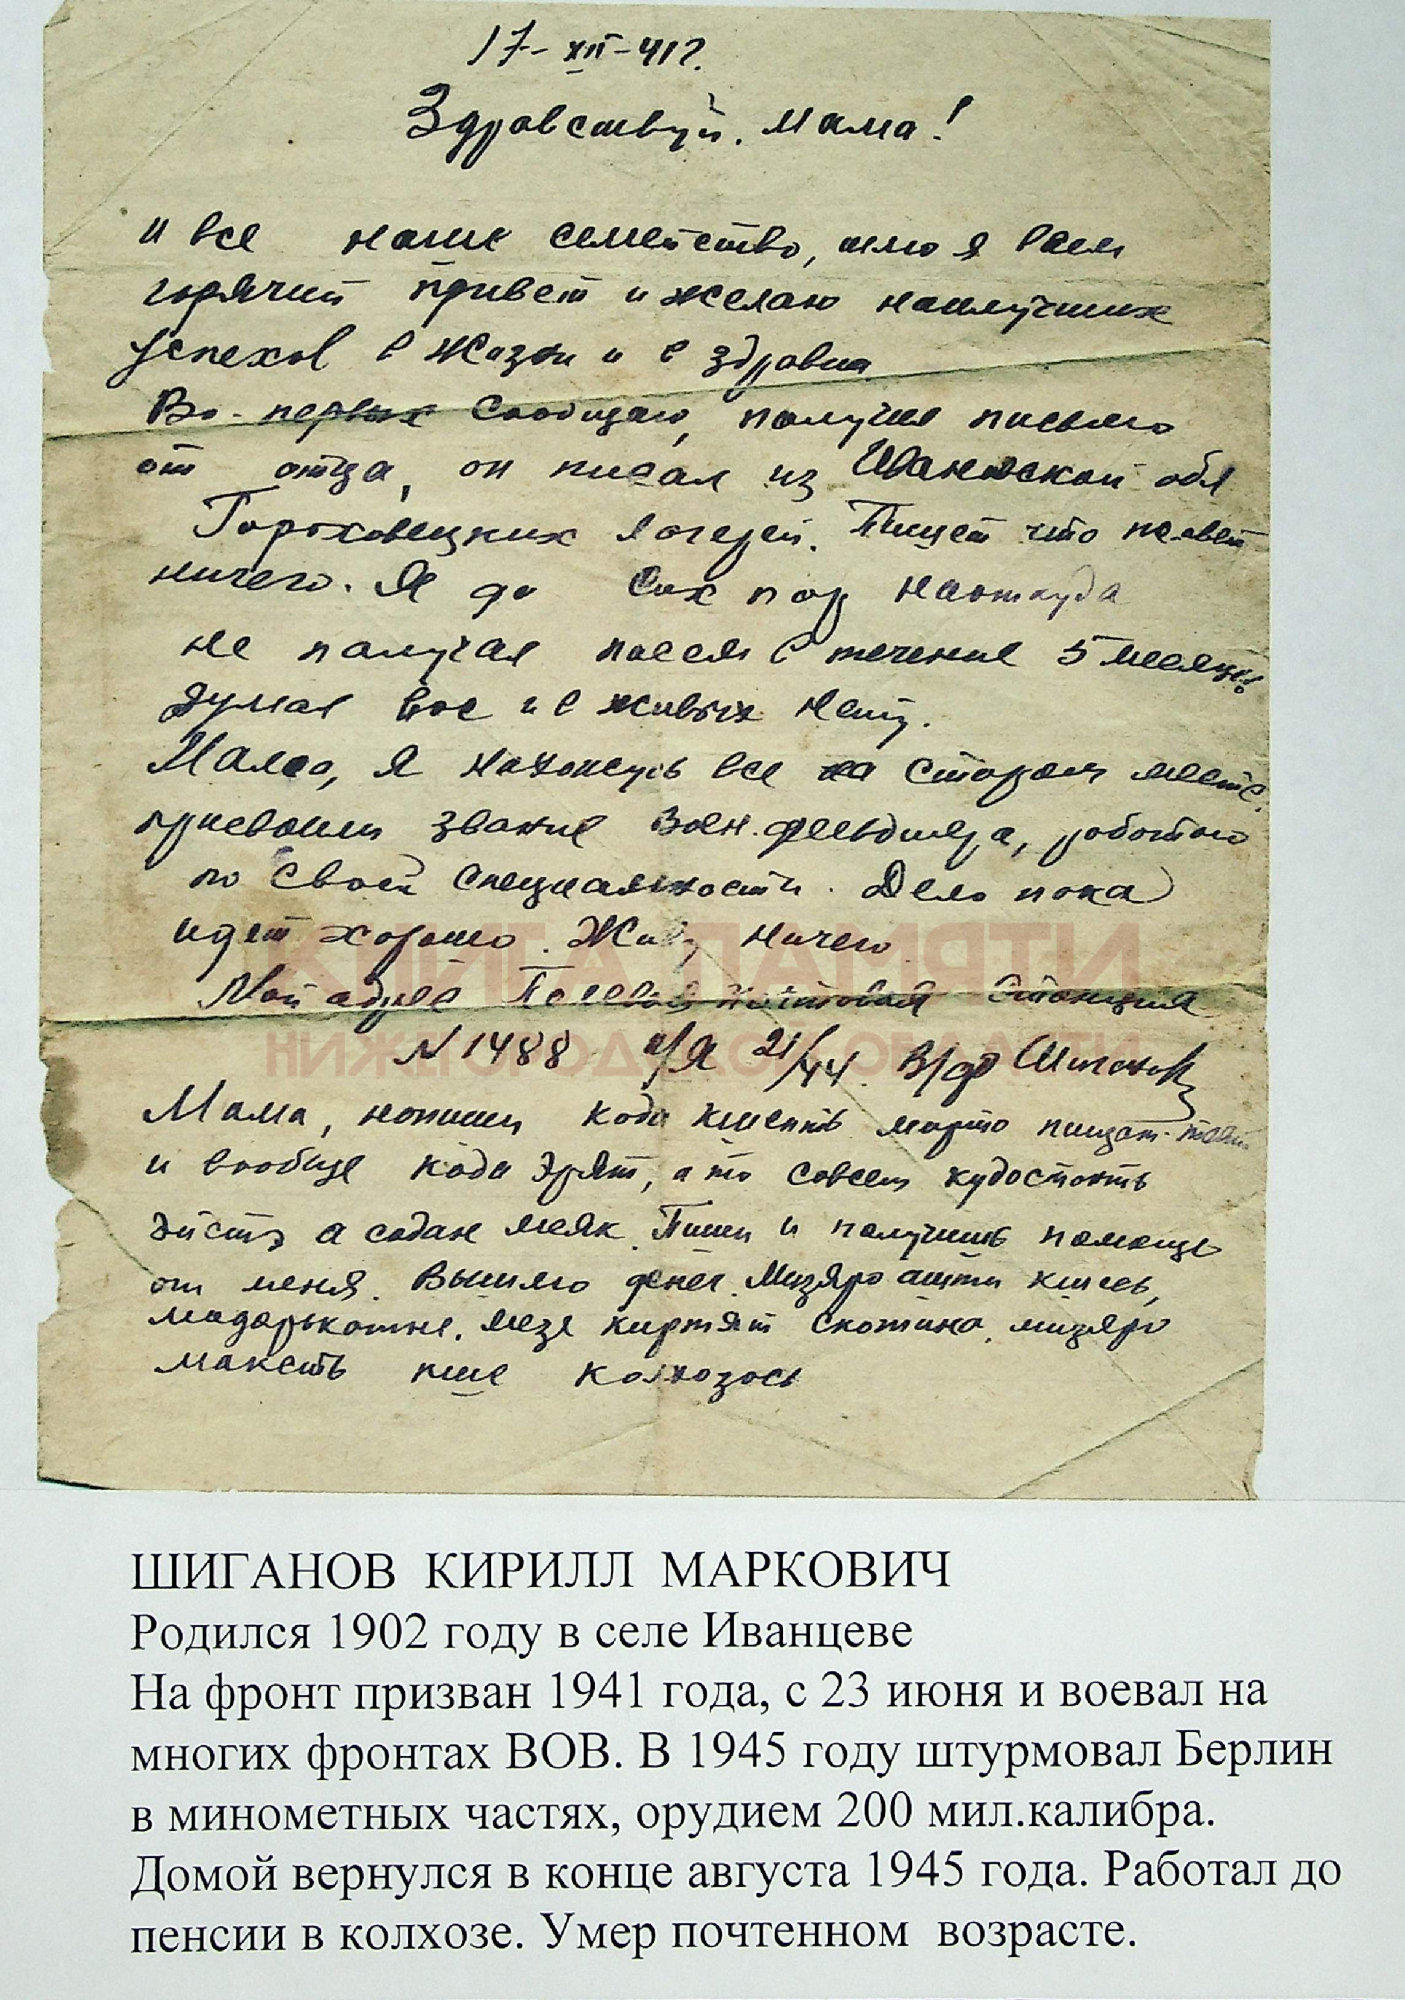 17-XII-41г.
Здравствуй, мама!
и все наше семейство, шлю я вам
горячий привет и желаю наилучших
успехов в жизни и в здравии
Во-первых сообщаю, получил письмо
от отца, он писал из Ивановской обл
Гороховецких лагерей. Пишет что
ничего. Я до сих пор наоткуда
не получал писем в течение 5 месяцев
думал вас и в живых нету.
Мама, я нахожусь все на старом месте,
присвоили звание воен. фельдшера, работаю
по своей специальности. Дело пока
идет хорошо. Живу ничего
Мой адрес Полевая почтовая станция
№ 1488 п/я 21/44. В/ф Шиганов
Мама, напиши кода марто
и вообще кода эрят, а то совсем
а содан Пиши и получишь помощь
от меня. Вышлю денег. Мизяро
мезе скотина. мизяро
максть колхозось
КНИГА ПАМЯТИ
НИЖЕГОРОДСКОЙ ОБЛАСТИ
ШИГАНОВ КИРИЛЛ МАРКОВИЧ
Родился 1902 году в селе Иванцеве
На фронт призван 1941 года, с 23 июня и воевал на
многих фронтах ВОВ. В 1945 году штурмовал Берлин
в минометных частях, орудием 200 мил.калибра.
Домой вернулся в конце августа 1945 года. Работал до
пенсии в колхозе. Умер почтенном возрасте.